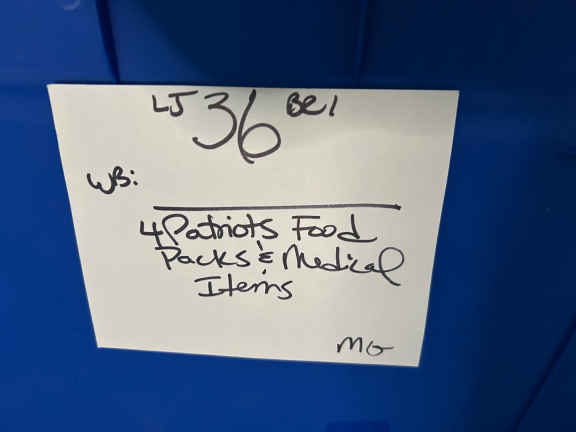 LJ 36 BR1
WB:
4Patriots Food
Packs & Medical
Items
MG